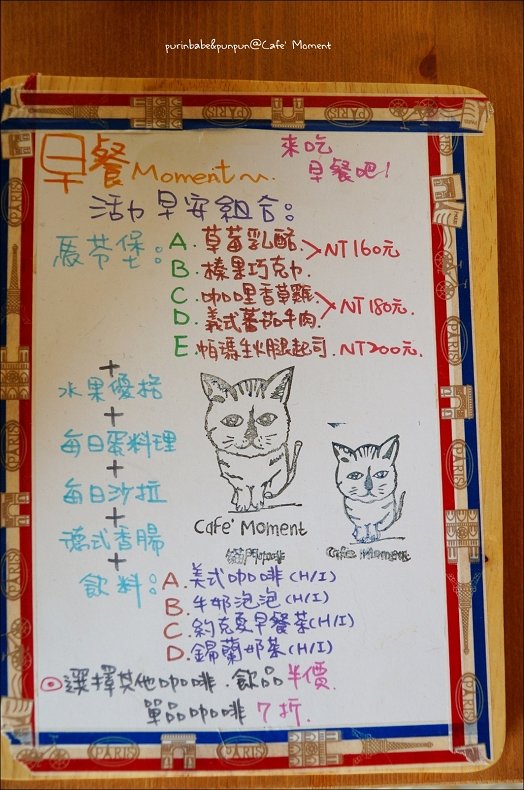 purinbabe&punpun@Cafe' Moment
早餐Moment~
來吃
早餐吧!
活力早安組合:
馬芬堡: A. 草莓乳酪
B. 榛果巧克力
NT160元
C. 咖哩香草雞
D. 義式蕃茄牛肉
NT180元
E 帕瑪生火腿起司. NT200元.
+
水果優格
+
每日蛋料理
+
每日沙拉
+
德式香腸
+
飲料: A. 美式咖啡(H/I)
B. 牛奶泡泡(H/I)
C. 約克夏早餐茶(H/I)
D. 錫蘭奶茶(H/I)
Cafe' Moment
Cafe Moment
選擇其他咖啡.飲品半價.
單品咖啡 7折.
PARIS